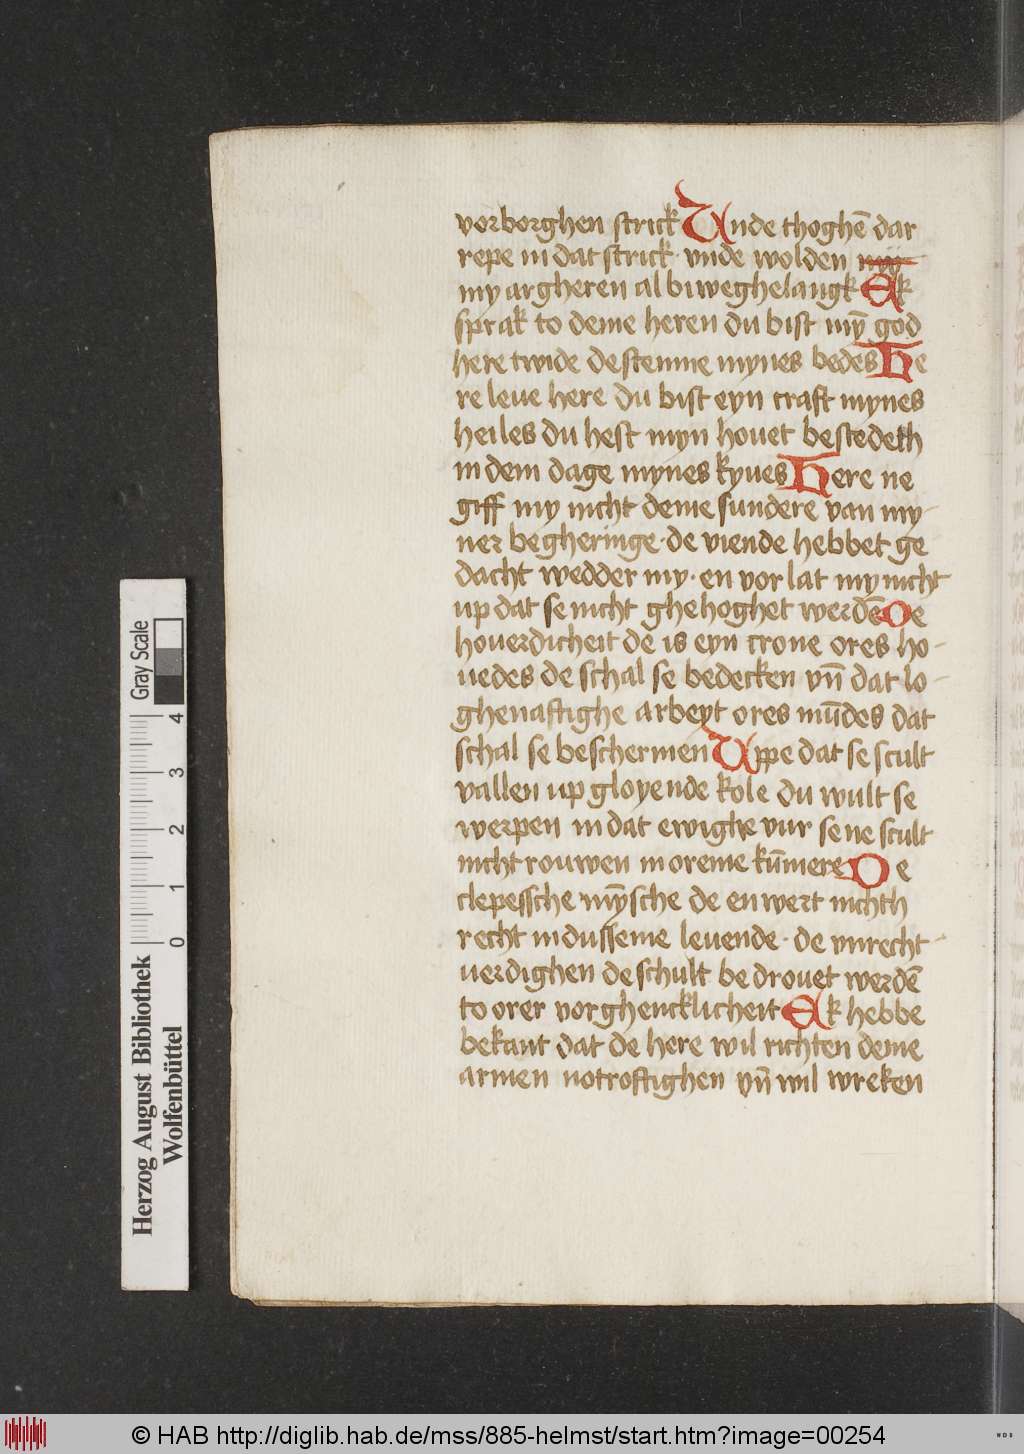 vorborghen strick Unde thoghē dar
repe in dat strick · vnde wolden
my argheren al bi weghelangk Ek
sprak to deme heren du bist mȳ god
here twide de stemme mynes bedes He
re leue here du bist eyn craft mynes
heiles du hest myn houet bestedeth
in dem dage mynes kyues Here ne
giff my nicht deme sundere van my-
ner begheringe · de viende hebbet ge
dacht wedder my · en vor lat my nicht
up dat se nicht ghehoghet werdē De
houerdicheit de is eyn crone ores ho-
uedes de schal se bedecken vn̄ dat lo-
ghenaftighe arbeyt ores mūdes dat
schal se beschermen Uppe dat se scult
vallen up gloyende kole du wult se
werpen in dat ewighe vur se ne scult
nicht rouwen in oreme kūmere De
clepessche mȳsche de en wert nichth
recht in dusseme leuende · de vnrecht-
uerdighen de schult bedrouet werdē
to orer vorghencklicheit Ek hebbe
bekant dat de here wil richten deme
armen notroftighen vn̄ wil wreken
Herzog August Bibliothek
Wolfenbüttel
0 1 2 3 4
Gray Scale
© HAB http://diglib.hab.de/mss/885-helmst/start.htm?image=00254
WDB